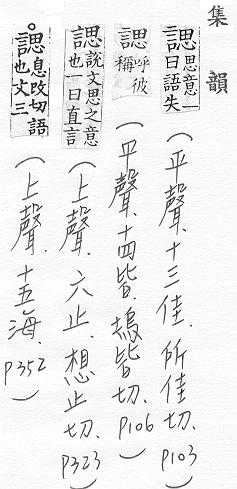 集韻
諰思意一曰語失(平聲.十三佳.所佳切.P103)
諰呼彼稱(平聲.十四皆.塢皆切.P106)
諰說文思之意也一曰直言(上聲.六止.想止切.P323)
○諰息改切語也文三(上聲.十五海.P352)